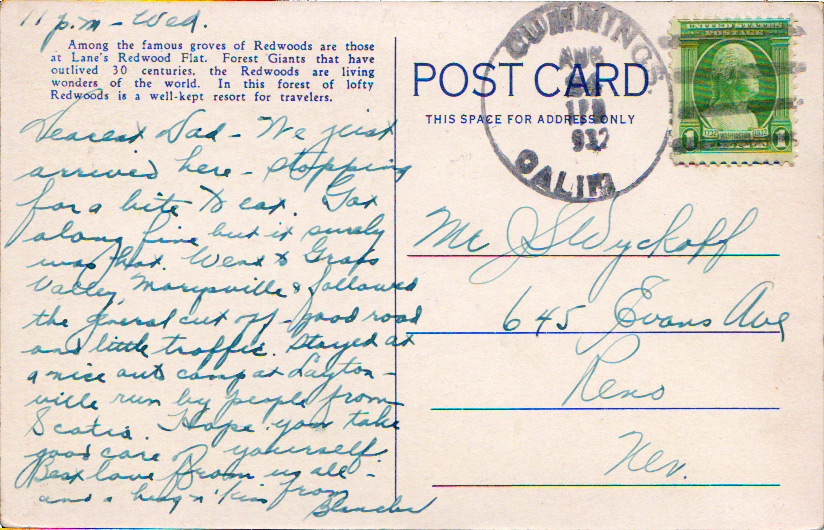 11 p.m - Wed.
Among the famous groves of Redwoods are those
at Lane's Redwood Flat. Forest Giants that have
outlived 30 centuries, the Redwoods are living
wonders of the world. In this forest of lofty
Redwoods is a well-kept resort for travelers.
Dearest Dad - We just
arrived here - stopping
for a bite to eat. Got
along fine but it surely
was hot. Went to Grass
Valley, Marysville & followed
the general cut off - good road
and little traffic. Stayed at
a nice auto camp at Layton-
ville run by people from
Scotia. Hope you take
good care of yourself
Best love from us all -
and a hug n' kiss from
Blanche
CUMMINGS.
AUG
1932
CALIF.
POST CARD
THIS SPACE FOR ADDRESS ONLY
UNITED STATES
POSTAGE
1 1732 WASHINGTON 1932 1
Mr J S Wyckoff
645 Evans Ave
Reno
Nev.